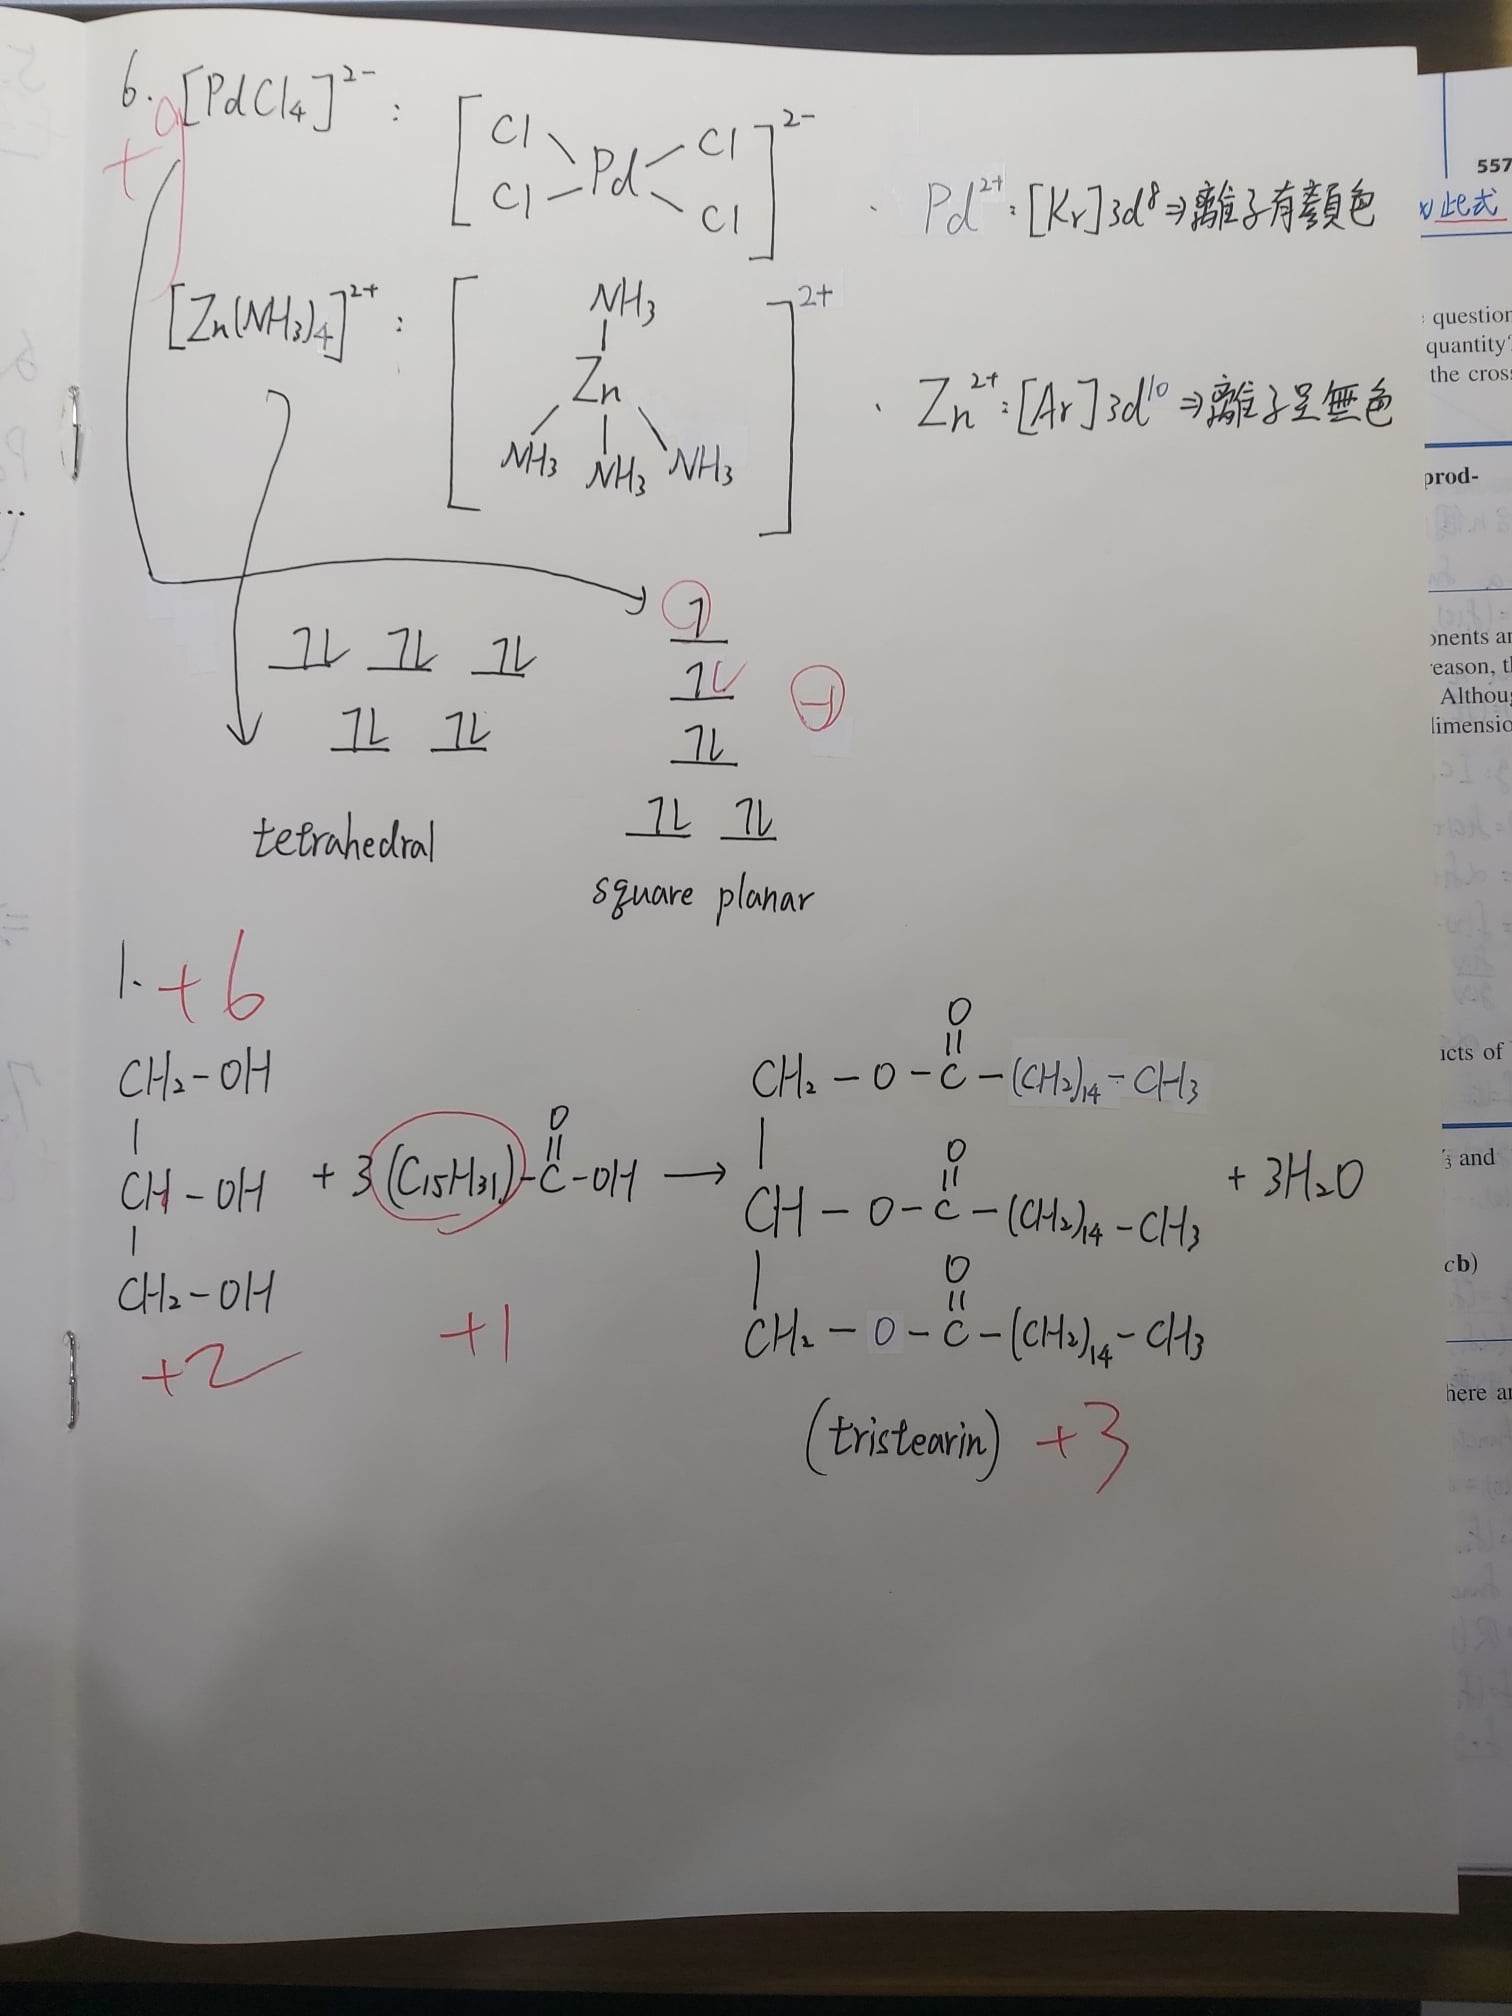 6. [PdCl4]²⁻ : [Cl Cl Pd Cl Cl]²⁻ . Pd²⁺ : [Kr]3d⁸ ⇒ 離子有顏色
+9
[Zn(NH3)4]²⁺ : [NH3 Zn NH3 NH3 NH3]²⁺ . Zn²⁺ : [Ar]3d¹⁰ ⇒ 離子呈無色
1↿⇂ ↿⇂ ↿⇂
↿⇂ ↿⇂
tetrahedral
↿
↿⇂
↿⇂
↿⇂ ↿⇂
-1
square planar
1. +6
CH2-OH
CH-OH + 3(C15H31)-C(=O)-OH → + 3H2O
CH2-OH
+2
+1
CH2-O-C(=O)-(CH2)14-CH3
CH-O-C(=O)-(CH2)14-CH3
CH2-O-C(=O)-(CH2)14-CH3
(tristearin) +3
557
此式
question
quantity
the cros
prod-
onents an
eason, t
Althou
limensio
icts of
3 and
cb)
here a